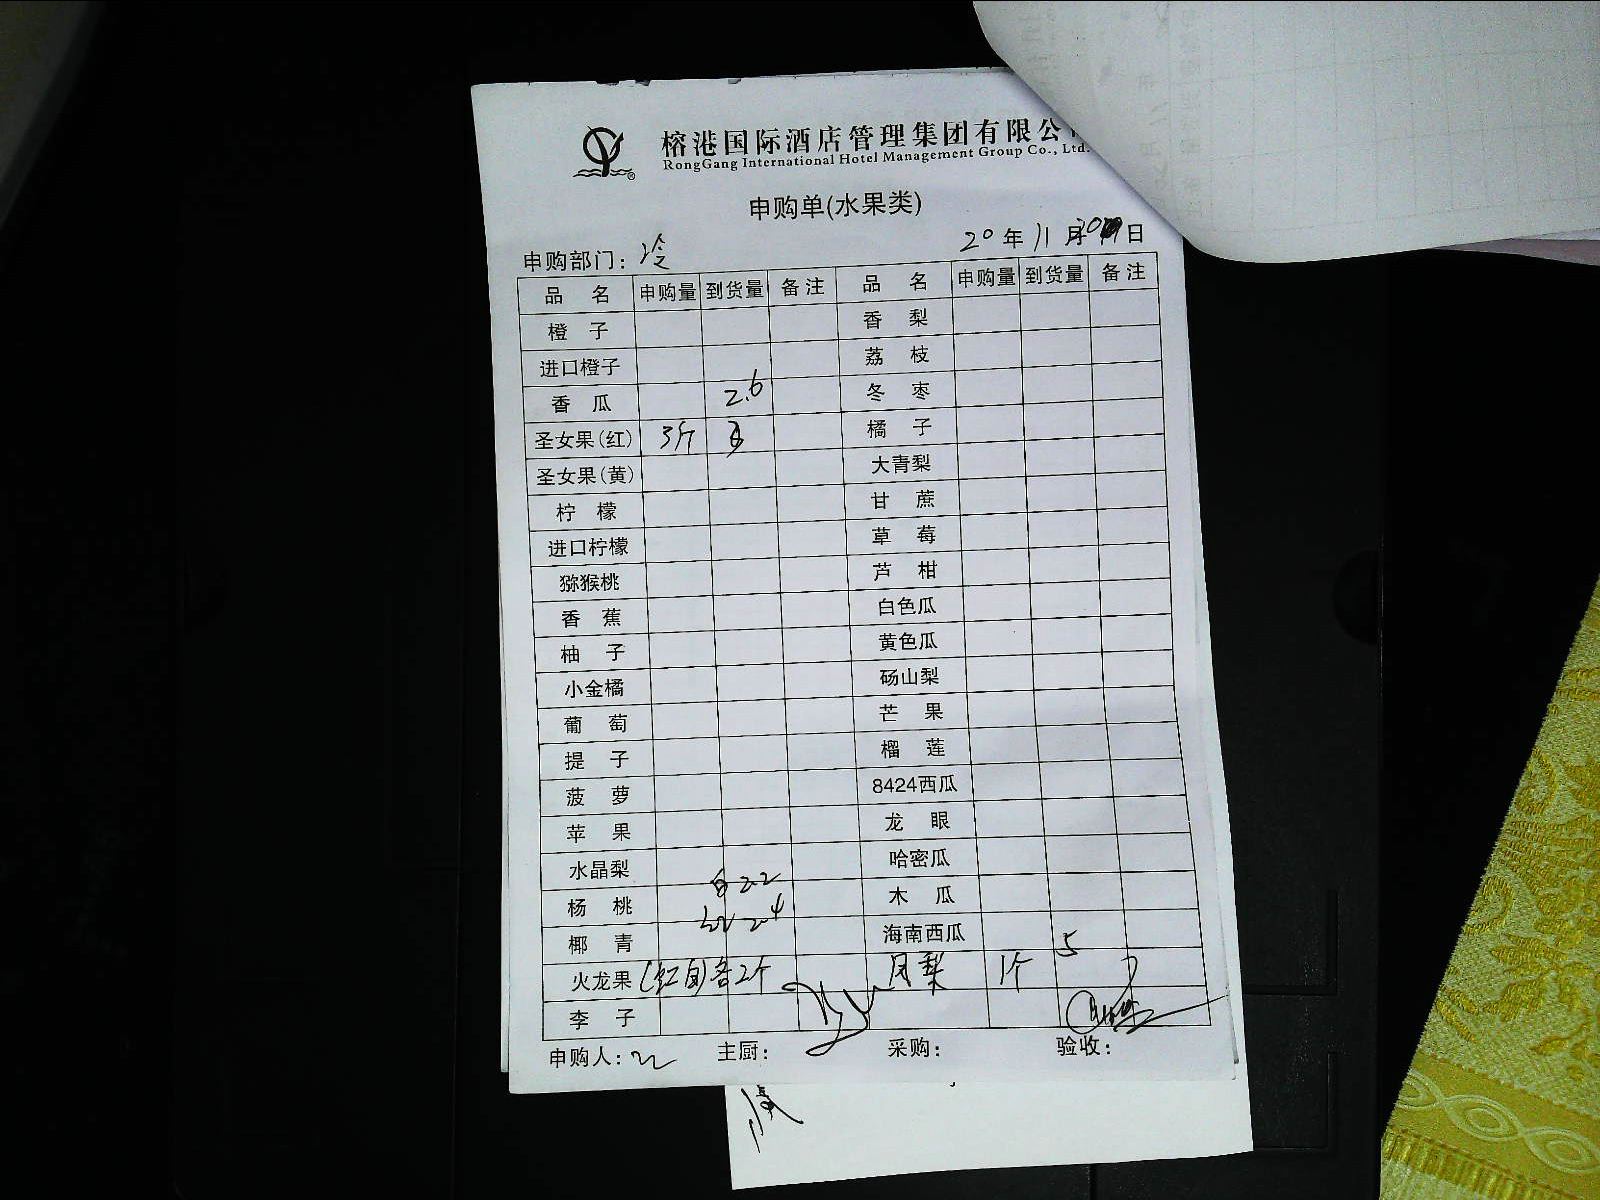 榕港国际酒店管理集团有限公
RongGang International Hotel Management Group Co., Ltd.
申购单(水果类)
申购部门: 冷 20 年 11 月 30 日
品 名 申购量 到货量 备注 品 名 申购量 到货量 备注
橙 子 香 梨
进口橙子 荔 枝
香 瓜 2.6 冬 枣
圣女果(红) 3斤 橘 子
圣女果(黄) 大青梨
柠 檬 甘 蔗
进口柠檬 草 莓
猕猴桃 芦 柑
香 蕉 白色瓜
柚 子 黄色瓜
小金橘 砀山梨
葡 萄 芒 果
提 子 榴 莲
菠 萝 8424西瓜
苹 果 龙 眼
水晶梨 哈密瓜
杨 桃 白 2.2 木 瓜
椰 青 红 2.4 海南西瓜
火龙果 (红白)各2个 凤梨 1个 5
李 子
申购人: 主厨: 采购: 验收: